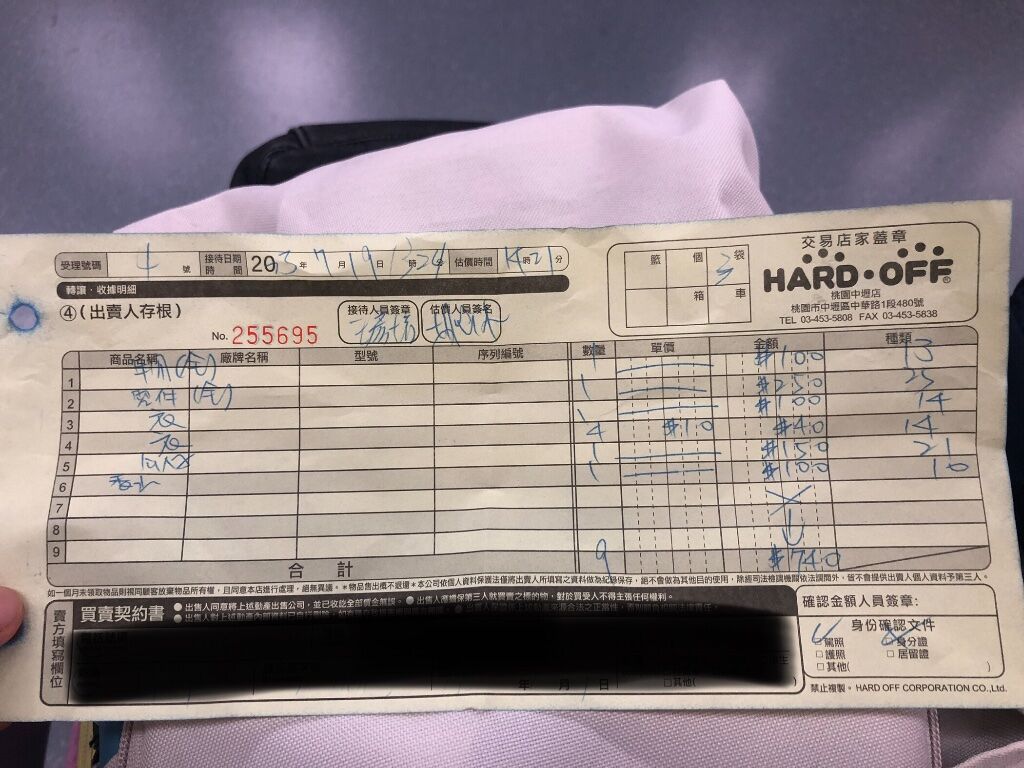 受理號碼 1 號 接待日期時間 2023年7月19日13時24分 估價時間 14時21分
轉讓・收據明細
④(出賣人存根)
接待人員簽章 估價人員簽名
No. 255695
籃 個 3 袋
箱 車
交易店家蓋章
HARD・OFF®
桃園中壢店
桃園市中壢區中華路1段480號
TEL 03-453-5808 FAX 03-453-5838
商品名稱 廠牌名稱 型號 序列編號 數量 單價 金額 種類
1 $100 13
2 1 $250 25
3 1 $100 14
4 4 $10 $40 14
5 1 $150 21
6 1 $100 10
7
8
9
合計 9 $740
如一個月未領取物品則視同顧客放棄物品所有權,且同意本店進行處理,絕無異議。*物品售出概不退還*本公司依個人資料保護法僅將出賣人所填寫之資料做為紀錄保存,絕不會做為其他目的使用,除經司法檢調機關依法調閱外,皆不會提供出賣人個人資料予第三人。
賣方填寫欄位
買賣契約書
●出售人同意將上述動產出售公司,並已收訖全部價金無誤。 ●出售人應擔保第三人就買賣之標的物,對於買受人不得主張任何權利。
年 月 日 □其他(
確認金額人員簽章:
身份確認文件
□駕照 □身分證
□護照 □居留證
□其他( )
禁止複製。HARD OFF CORPORATION CO.,Ltd.